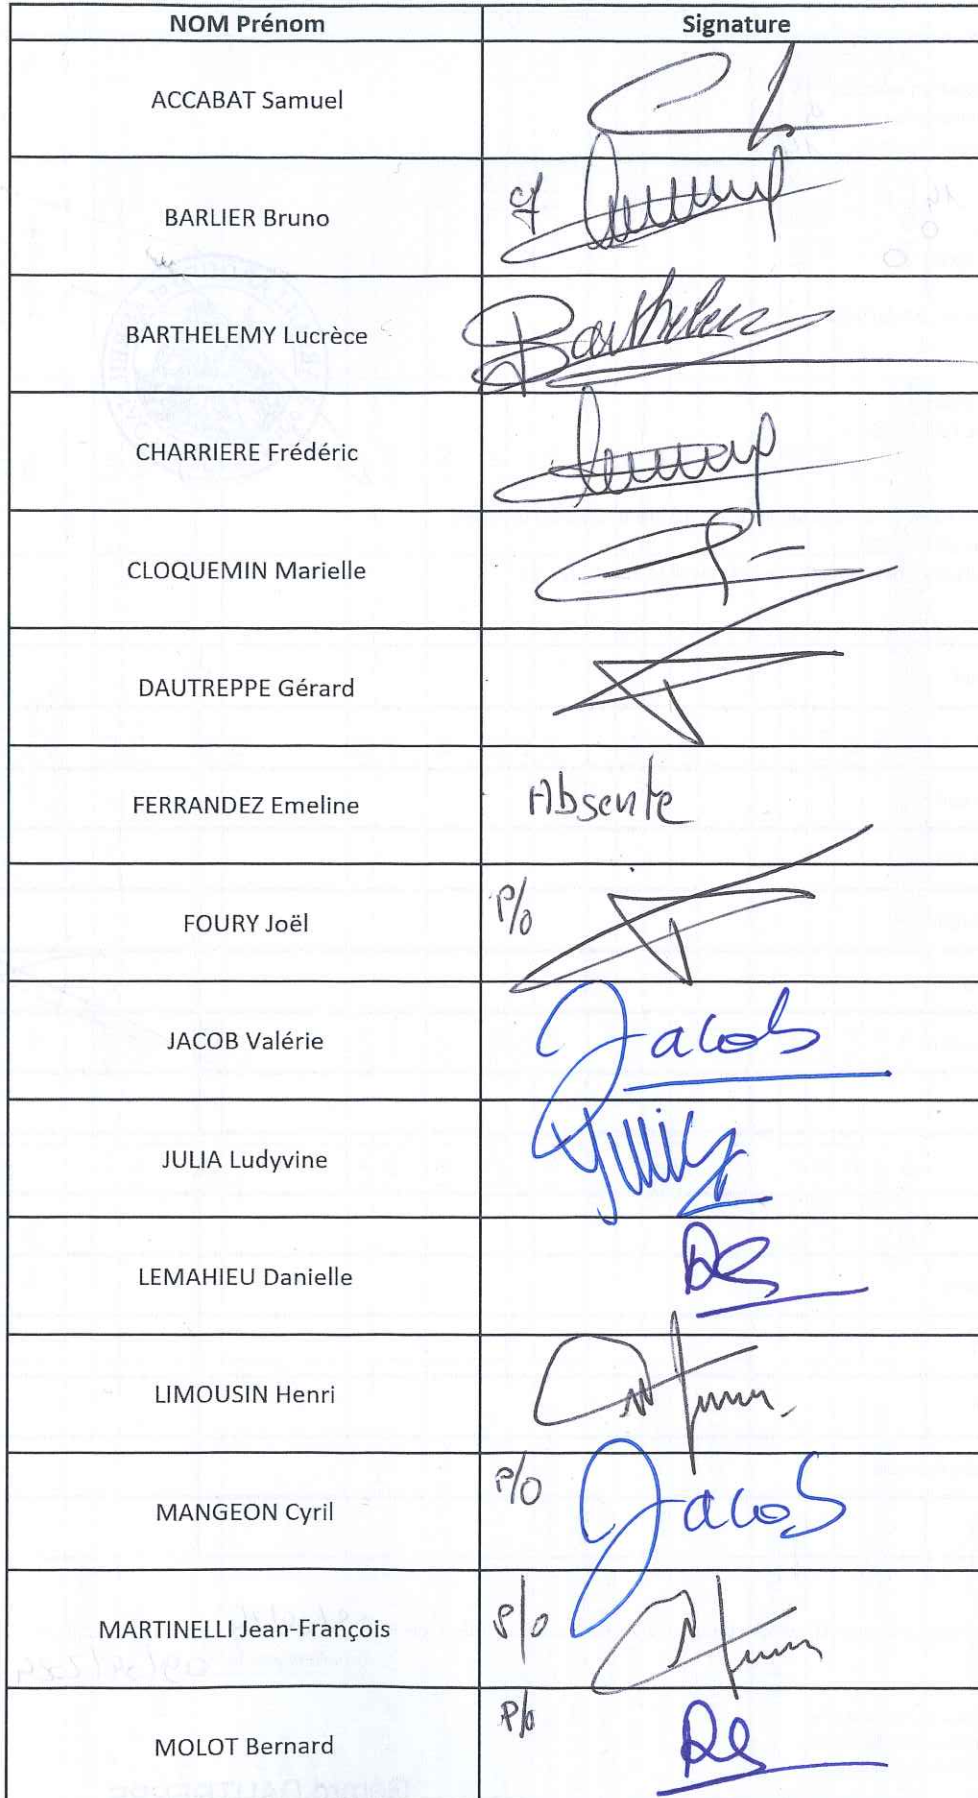 NOM Prénom Signature
ACCABAT Samuel
BARLIER Bruno
BARTHELEMY Lucrèce Barthelemy
CHARRIERE Frédéric
CLOQUEMIN Marielle
DAUTREPPE Gérard
FERRANDEZ Emeline Absente
FOURY Joël P/o
JACOB Valérie Jacob
JULIA Ludyvine
LEMAHIEU Danielle
LIMOUSIN Henri
MANGEON Cyril P/O Jacob
MARTINELLI Jean-François P/o
MOLOT Bernard P/o